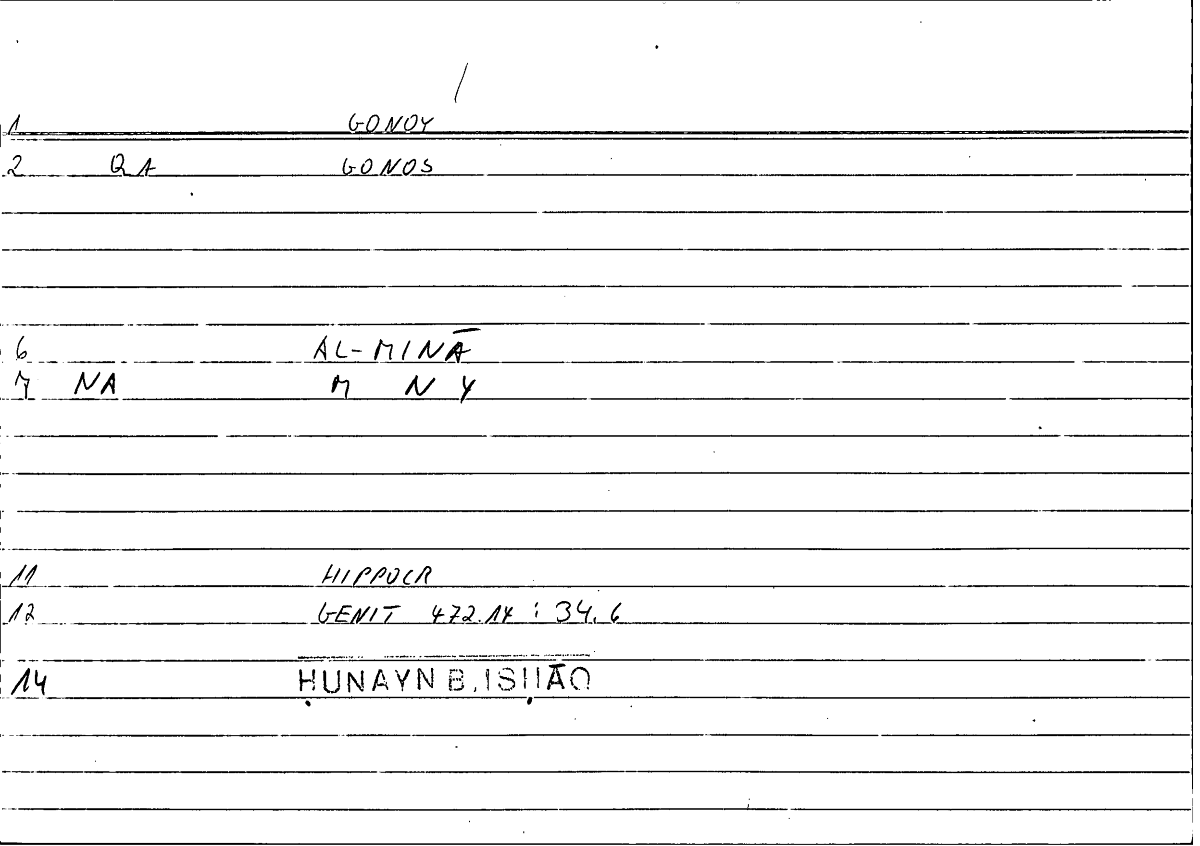 /
1 GONOY
2 QA GONOS
6 AL-MINĀ
7 NA M N Y
11 HIPPOCR
12 GENIT 472.14 : 34.6
14 ḤUNAYN B. ISḤĀQ